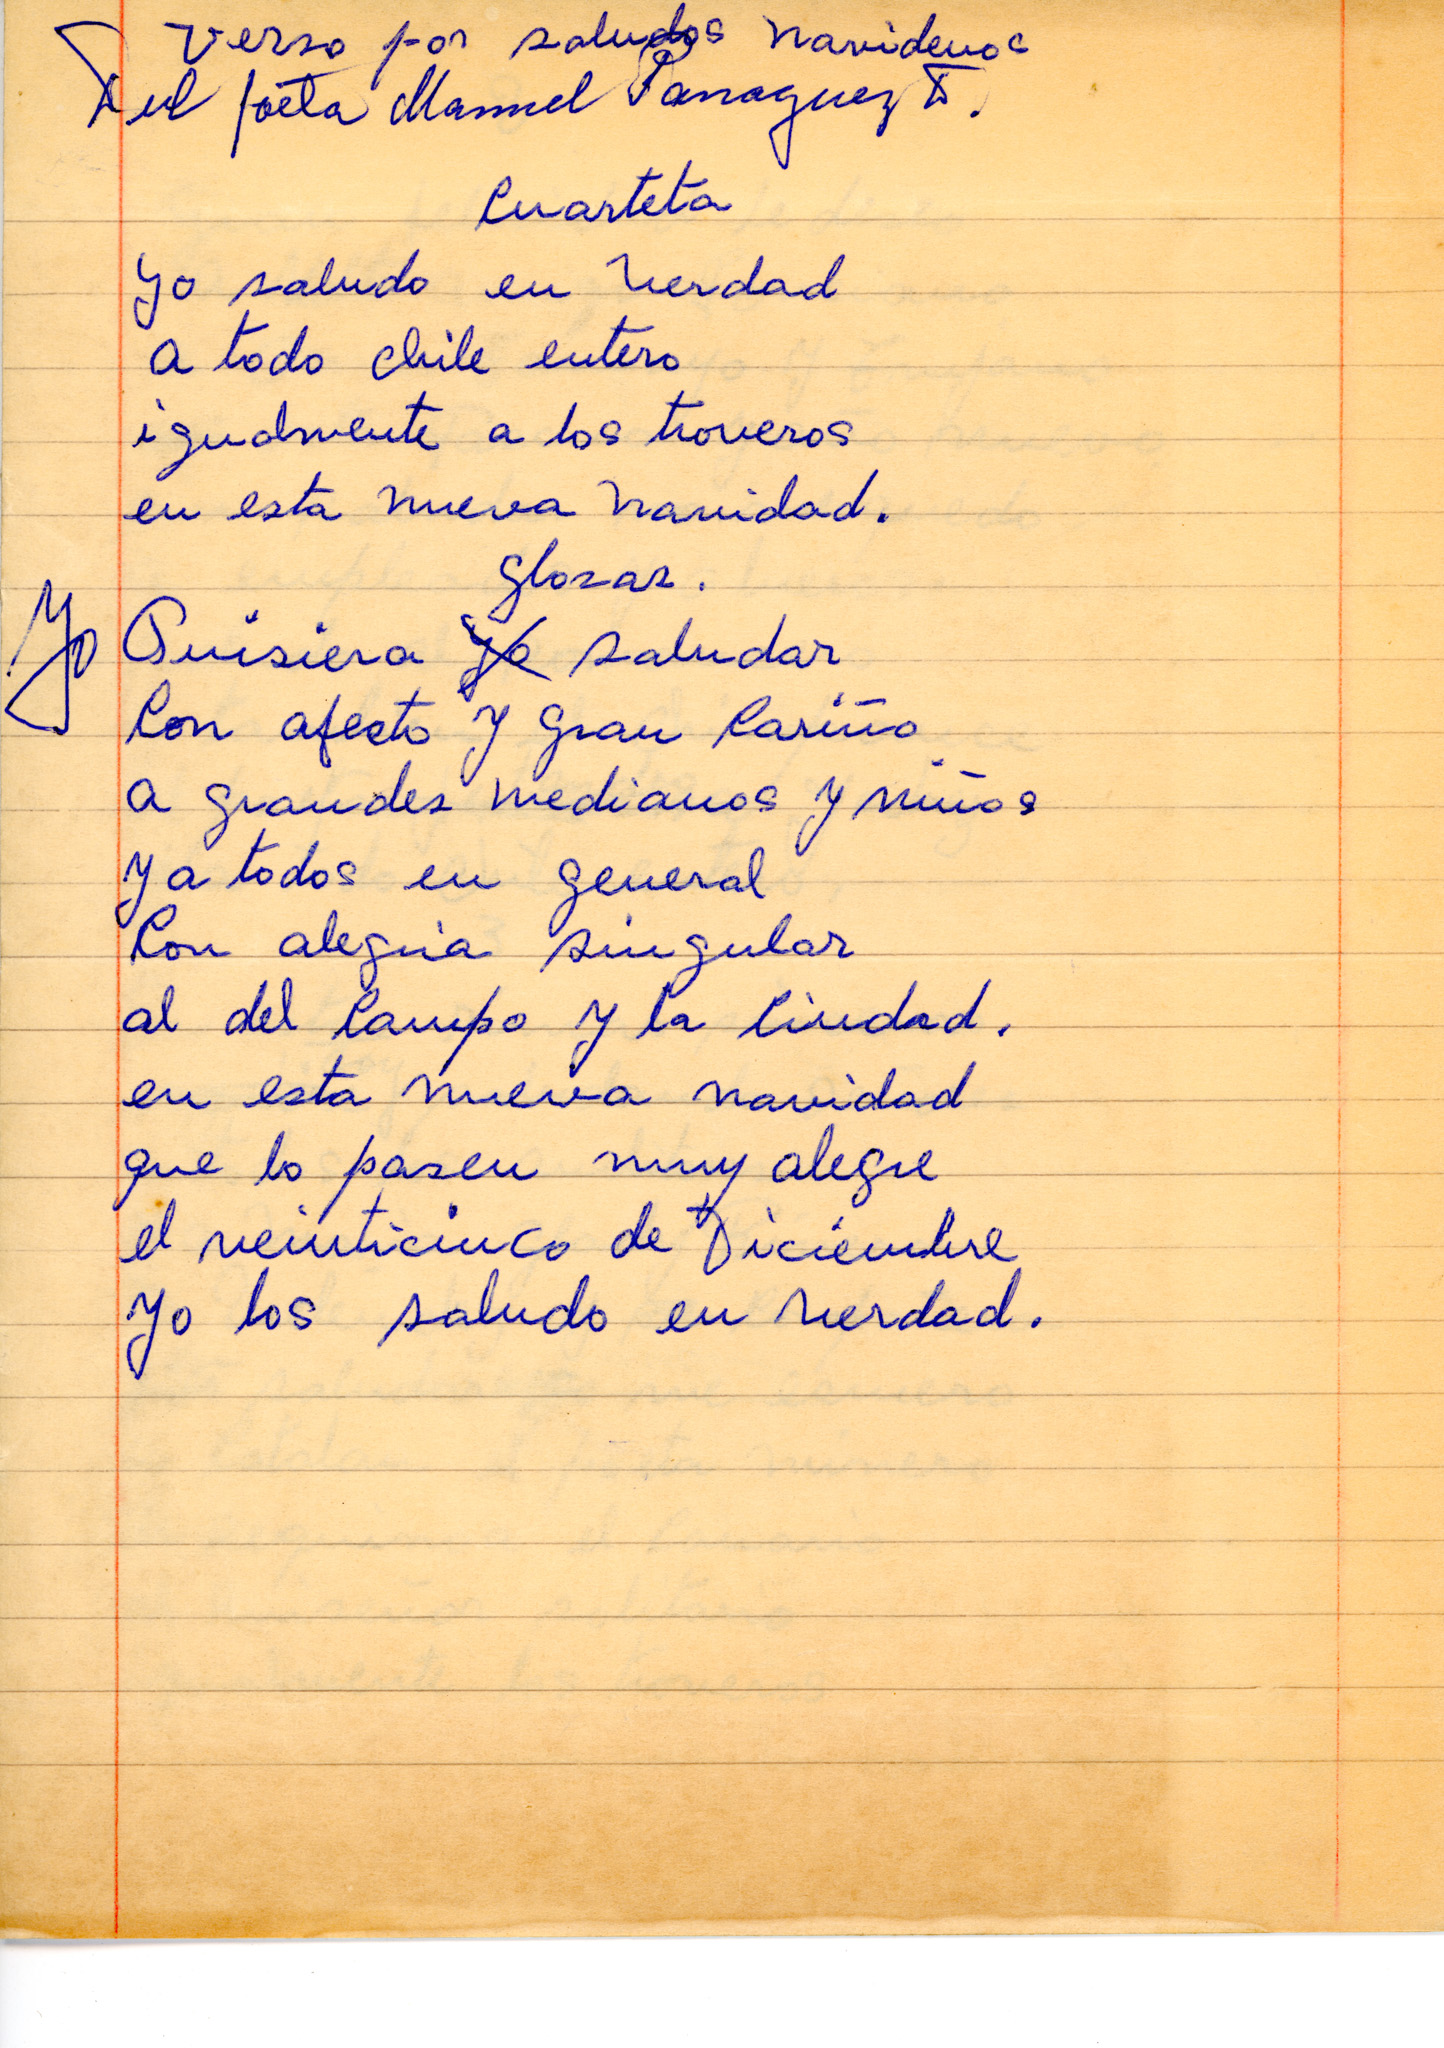 Verso por saludos navidenos
Del poeta Manuel
Cuarteta
Yo saludo en verdad
a todo chile entero
igualmente a los troveros
en esta nueva navidad.
glosas.
Yo Quisiera yo saludar
Con afecto y gran Cariño
a grandes medianos y niños
y a todos en general
Con alegria singular
al del Campo y la Ciudad.
en esta nueva navidad
que lo pasen muy alegre
el veinticinco de Diciembre
Yo los saludo en verdad.